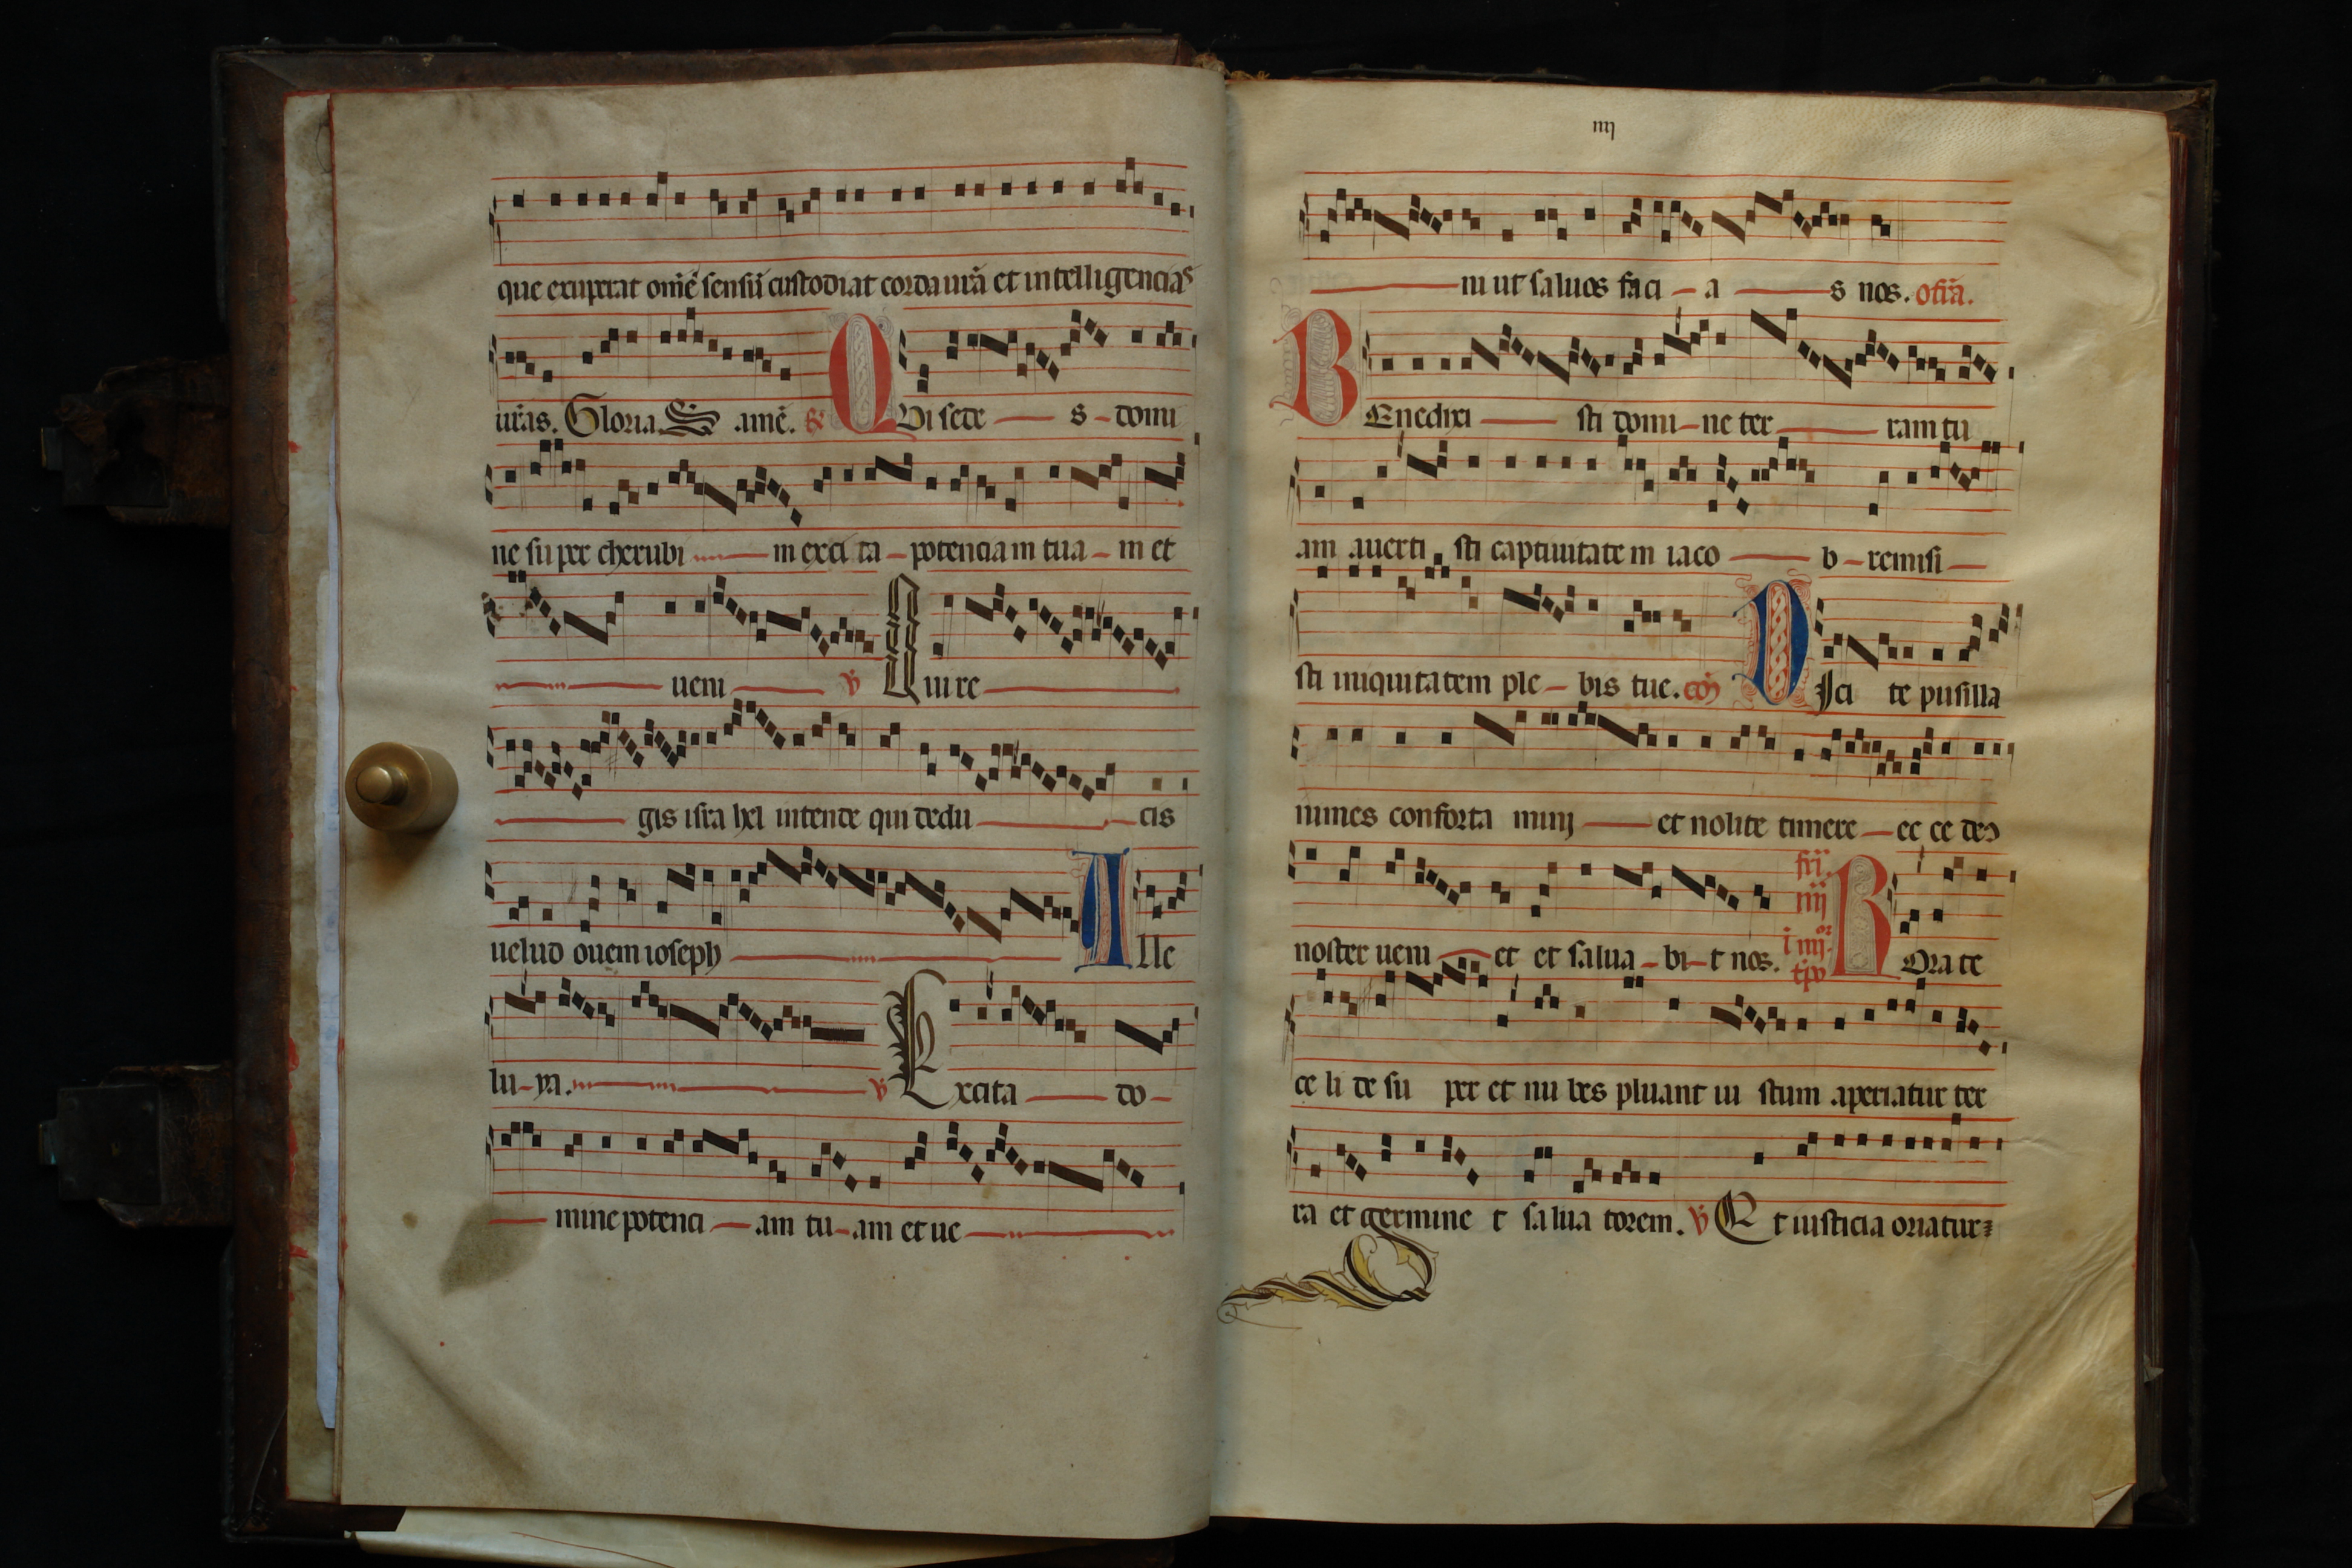 que exuperat omē sensū custodiat corda ura et intelligencias
uras. Gloria. S amē. R QVi sede s domi
ne super cherubi m exci ta potenciam tua m et
ueni V Qui re
gis isra hel intende qui dedu cis
uelud ouem ioseph Alle
lu ya. V Excita do
mine potenci am tu am et ue
iiij
ni ut saluos faci a s nos. ofra.
BEnedixi sti domi ne ter ram tu
am auerti sti captiuitatem iaco b remisi
sti iniquitatem ple bis tue. co DIci te pusilla
nimes conforta mini et nolite timere ec ce deus
noster ueni et et salua bi t nos. fri iiij i iiijor tp ROra te
ce li de su per et nu bes pluant iu stum aperiatur ter
ra et germine t salua torem. V Et iusticia oriatur